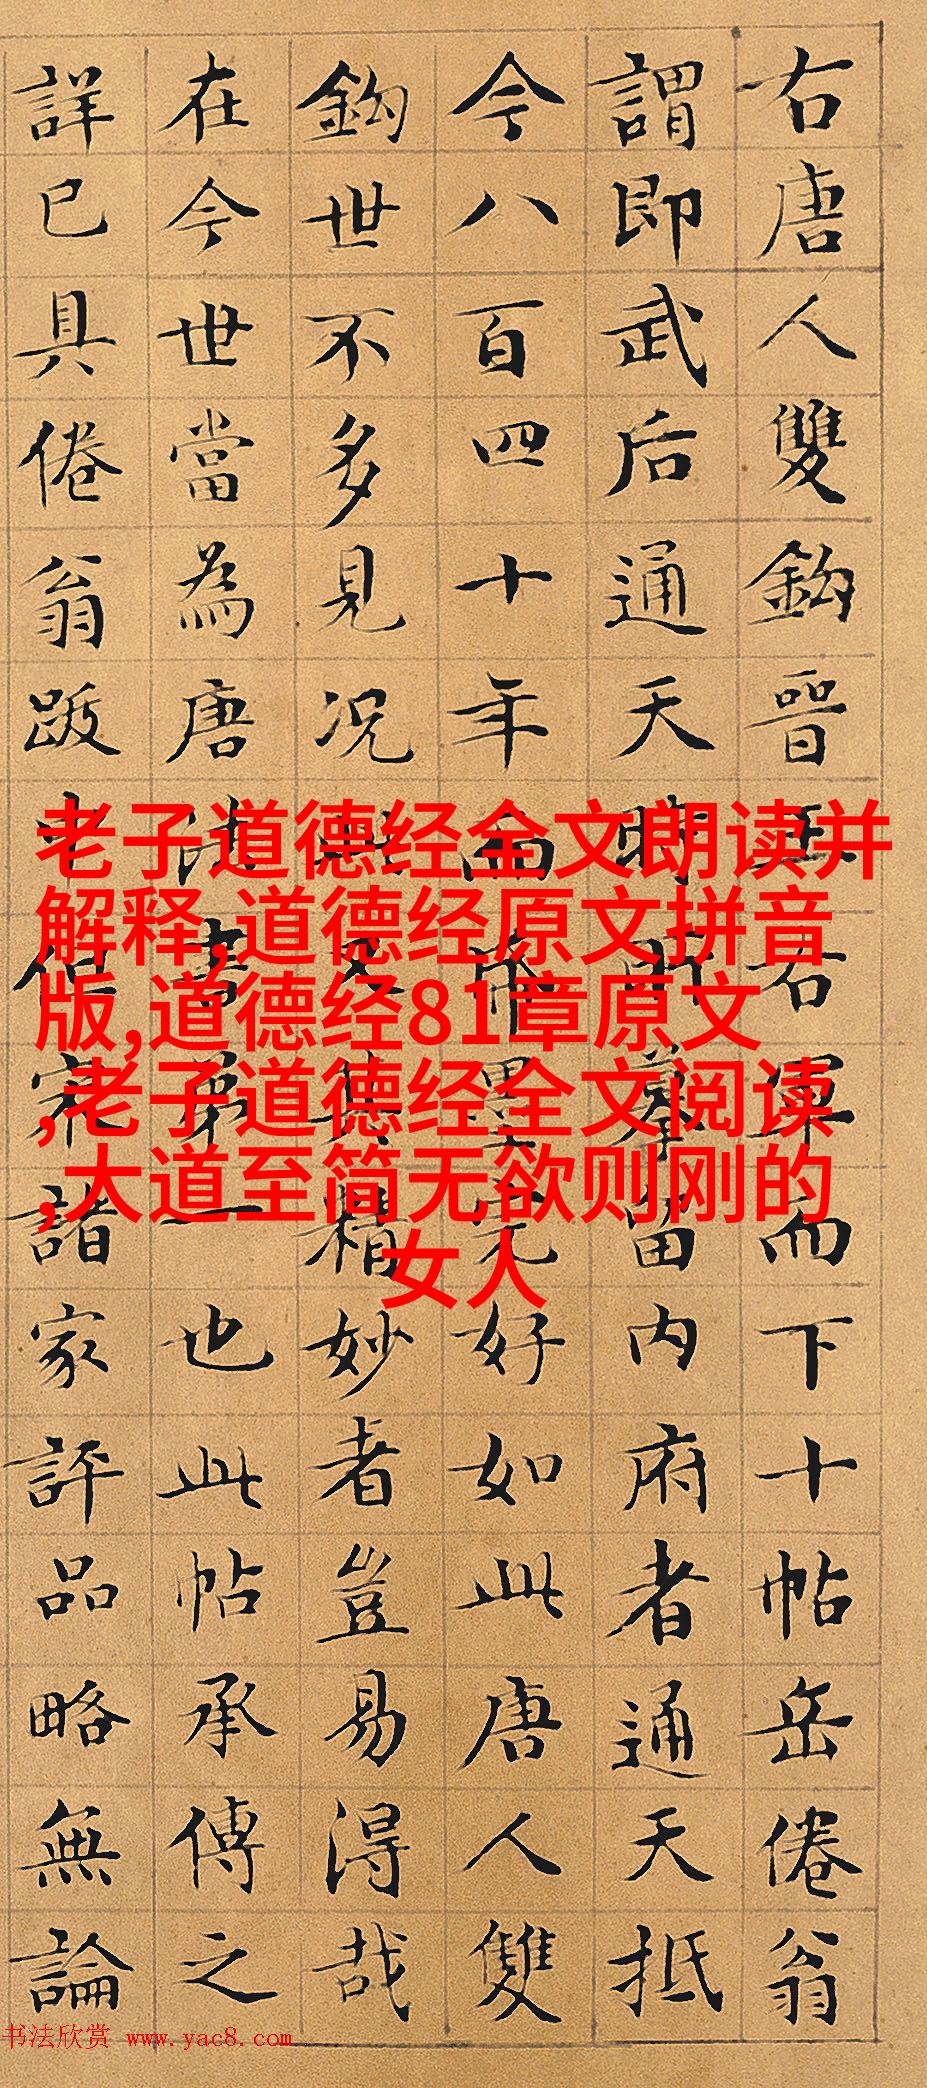 右唐人雙鈎晉王右軍而下十帖岳倦翁
謂即武后通天時所摹留内府者通天抵
今八百四十年而帋墨完好如此唐人雙
鈎世不多見况又其精妙者豈易得哉
在今世當為唐法書第一也此帖承傳之
詳已具倦翁跋中但諸家評品略無論
老子道德经全文朗读并
解释,道德经原文拼音
版,道德经81章原文
,老子道德经全文阅读
,大道至简无欲则刚的
女人
书法欣赏 www.yac8.com